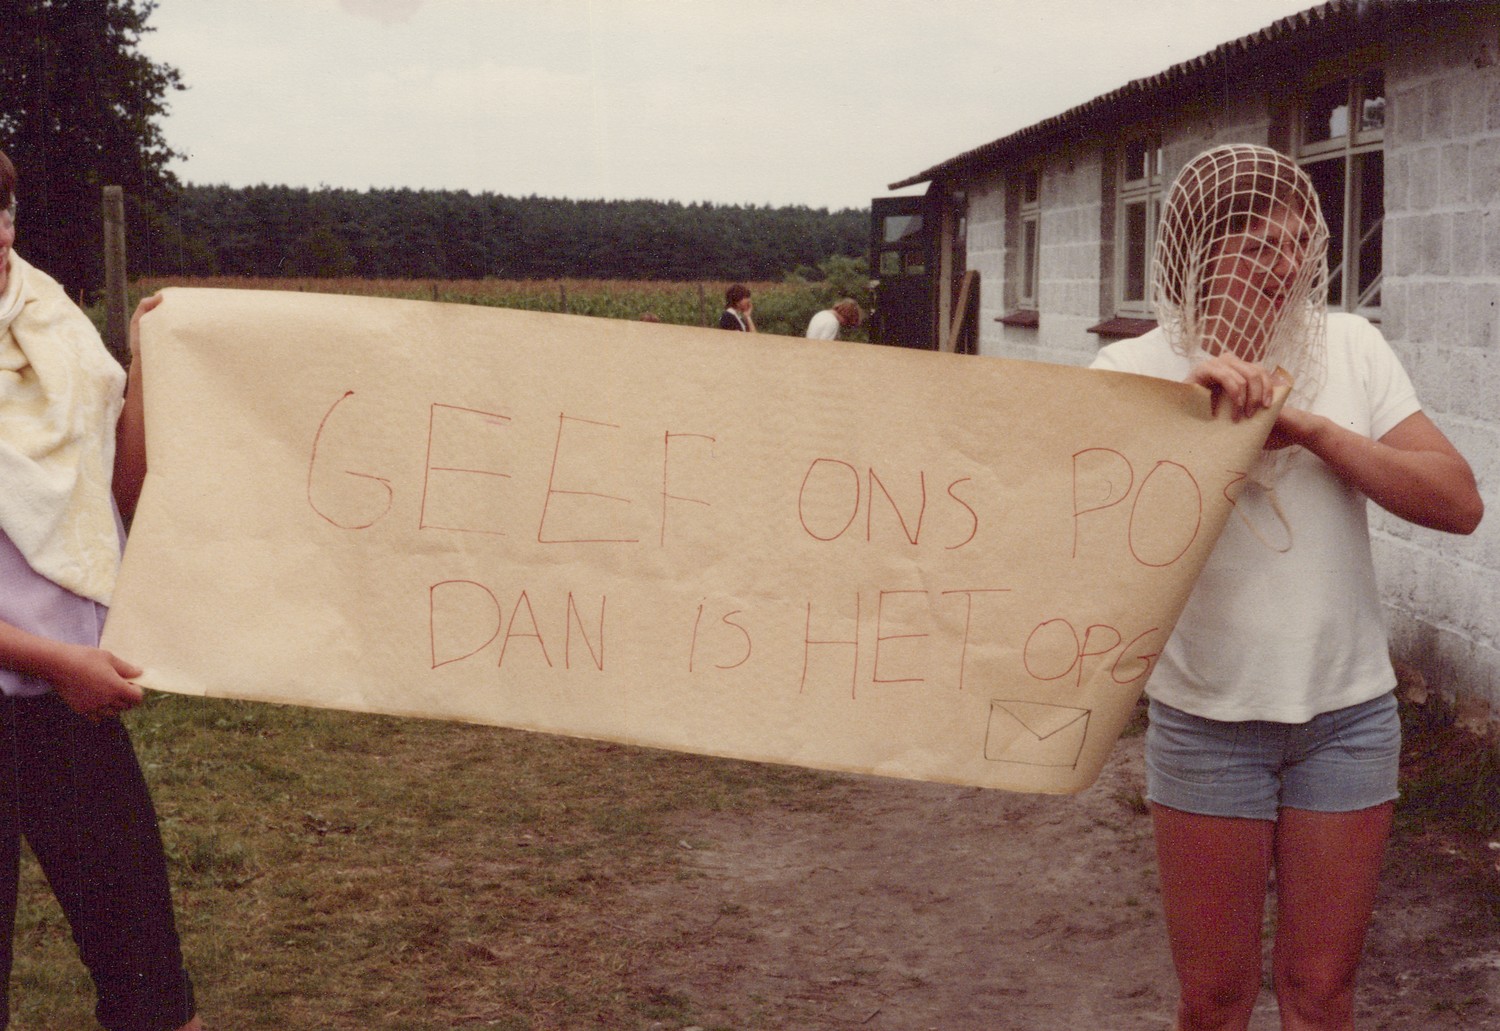 GEEF ONS POS
DAN iS HET OPG